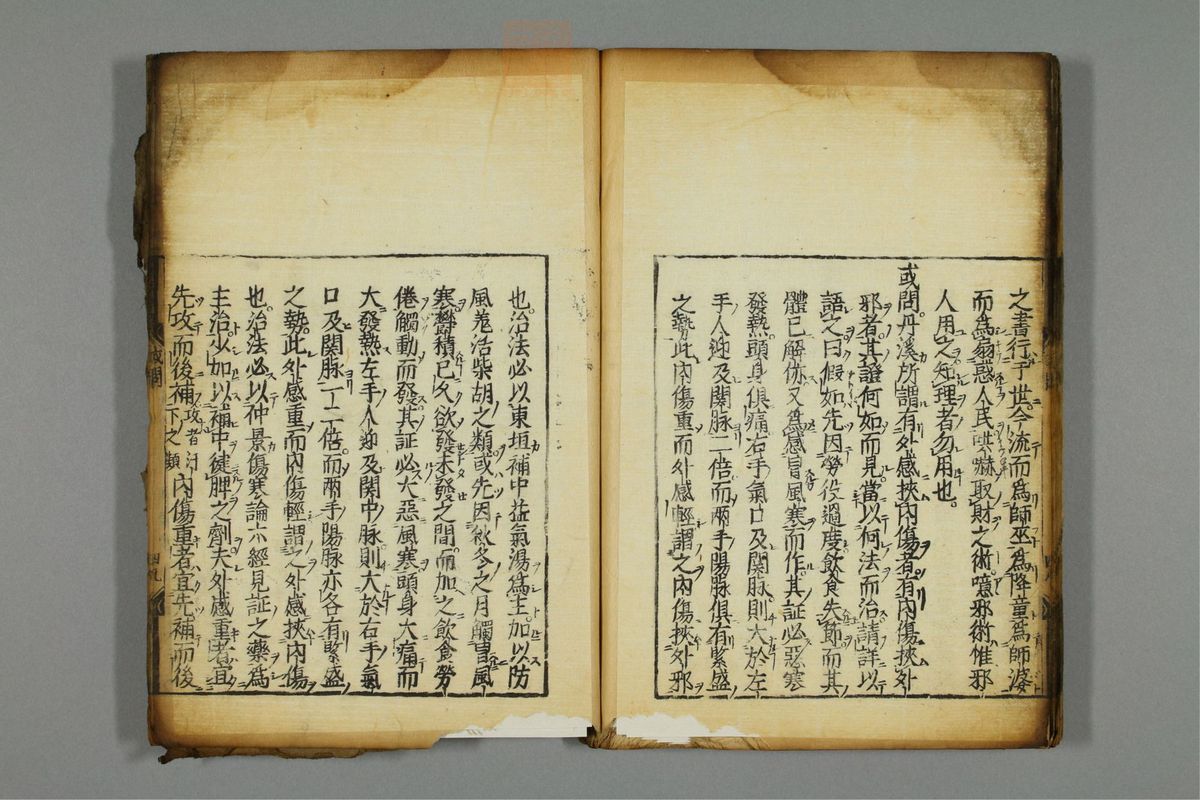 之書行于世今流而為師巫為降童為師婆
而為扇惑人民哄嚇取財之術噫邪術惟邪
人用之知理者勿用也
或問丹溪所謂有外感挾內傷者有內傷挾外
邪者其證何如而見當以何法而治請詳以
語之曰假如先因勞役過度飲食失節而其
體已解㑊又為感冒風寒而作其証必惡寒
發熱頭身俱痛右手氣口及関脉則大於左
手人迎及関脉一二倍而兩手陽脉俱有緊盛
之勢此內傷重而外感輕謂之內傷挾外邪
也治法必以東垣補中益氣湯為主加以防
風羗活柴胡之類或先因秋冬之月觸冒風
寒欝積已久欲發未發之間而加之飲食勞
倦觸動而發其証必大惡風寒頭身大痛而
大發熱左手人迎及関中脉則大於右手氣
口及関脉一二倍而兩手陽脉亦各有緊盛
之勢此外感重而內傷輕謂之外感挾內傷
也治法必以仲景傷寒論六經見証之藥為
主治少加以補中健脾之劑夫外感重者宜
先攻而後補攻者汗下之類內傷重者宜先補而後